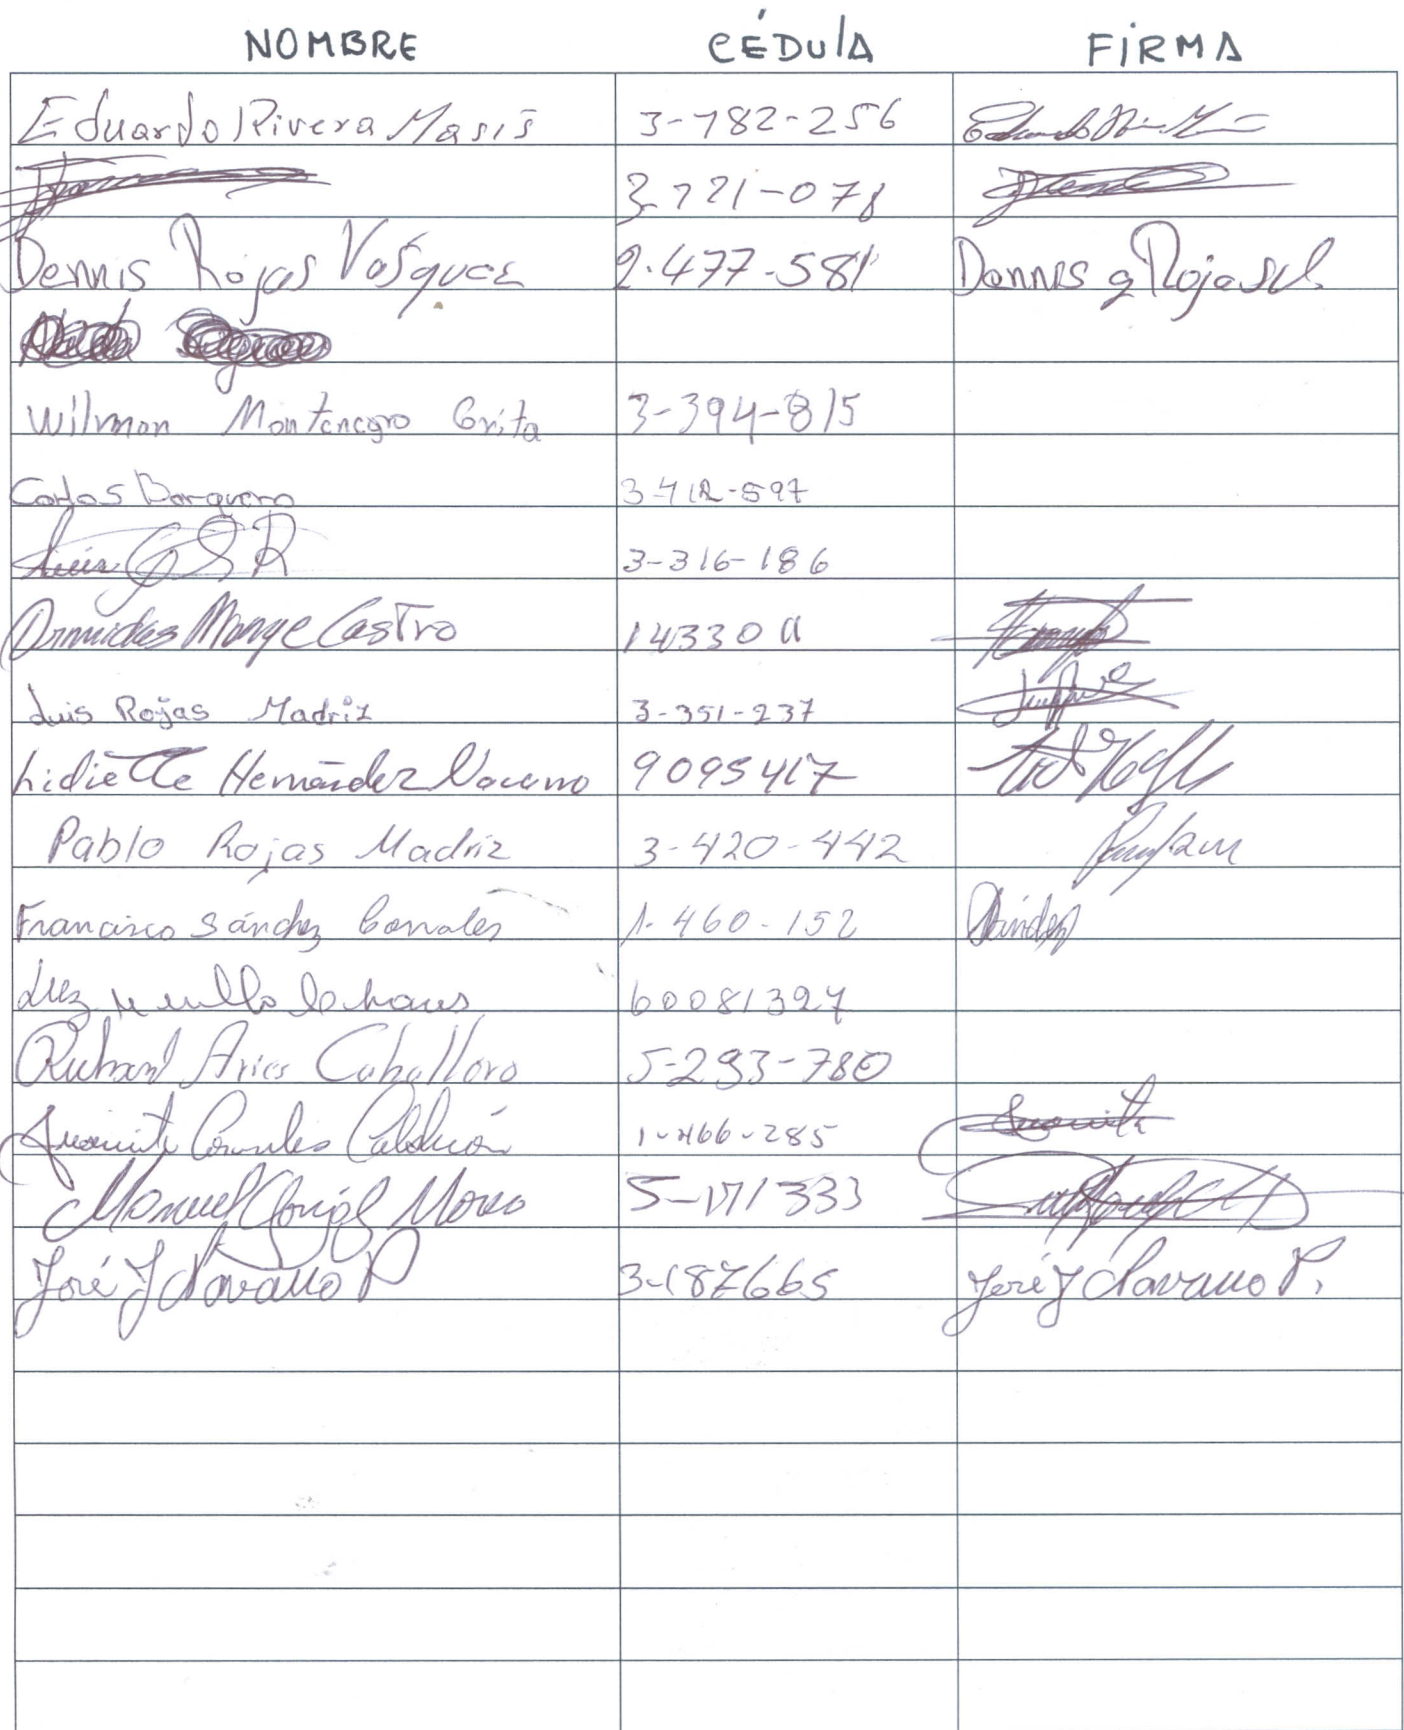 NOMBRE CÉDULA FIRMA
Eduardo Rivera Masís 3-182-256
3-221-078
Dennis Rojas Vasquez 2-477-581 Dennis Rojas
Wilman Montenegro Grita 3-394-815
Carlos Barquero 3-412-597
Luis G S R 3-316-186
Monge Castro
Luis Rojas Madriz 3-351-237
Lidiette Hernández Navarro 9095417
Pablo Rojas Madriz 3-420-442
Francisco Sánchez Corrales 1-460-152
Luz 60081327
Richard Arias Caballero 5-293-780
Juanita Corrales Calderón 1-466-285 Juanita
Manuel 5-171333
José J Navarro P 3-187665 José J Navarro P.